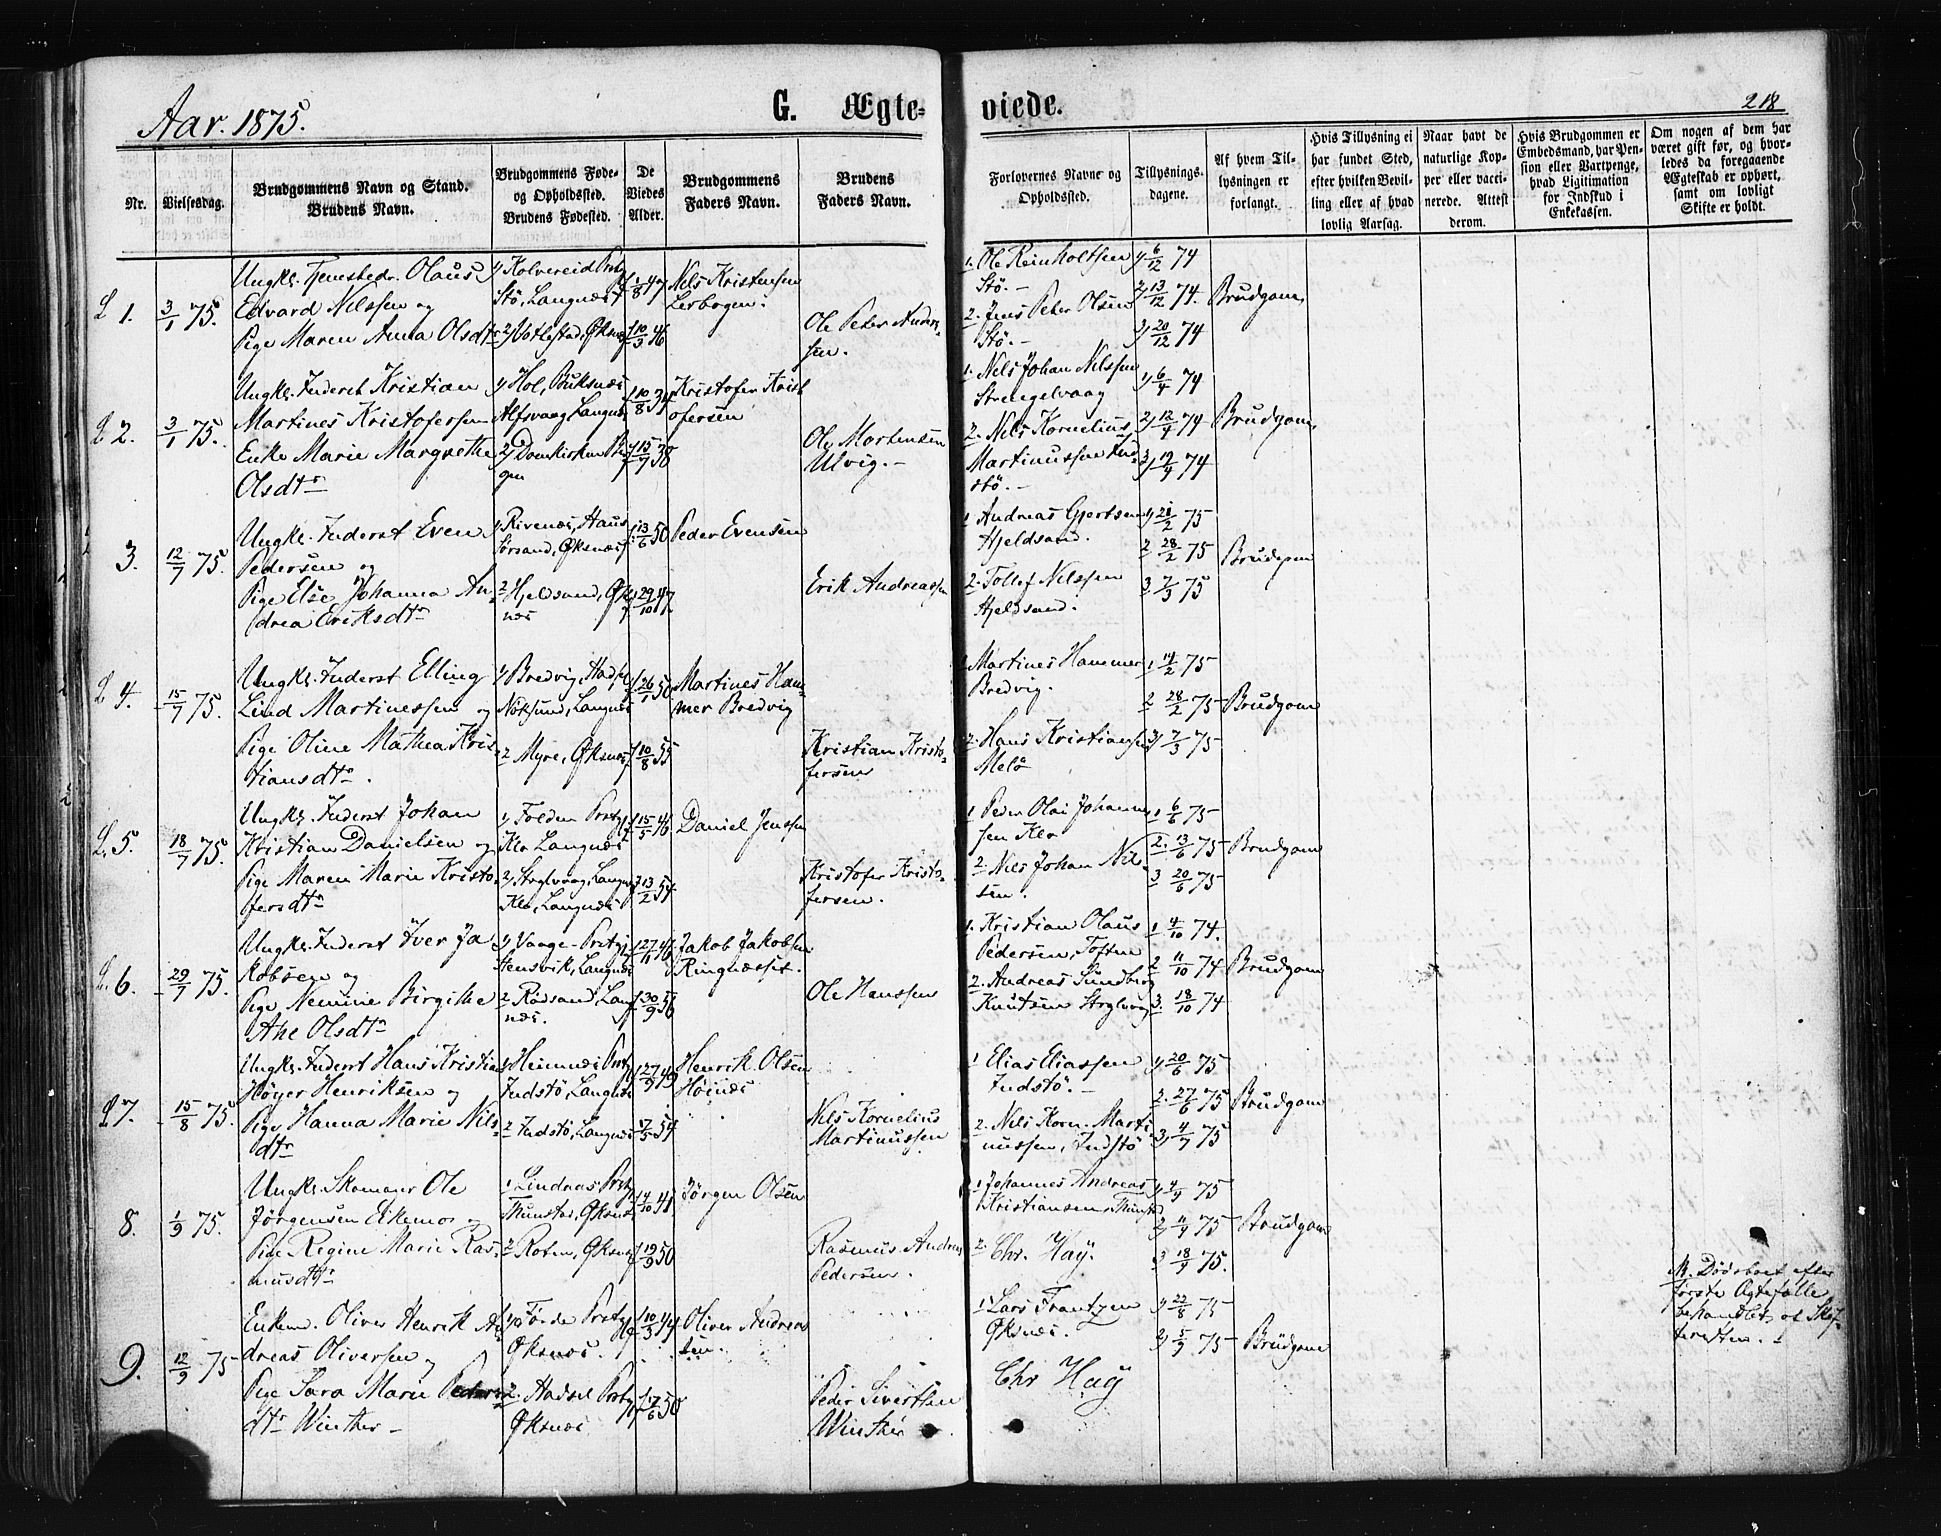 Aar. 1875.
G. Ægte-
viede.
218
Nr.
Vielsesdag.
Brudgommens Navn og Stand.
Brudens Navn.
Brudgommens Føde-
og Opholdssted.
Brudens Fødested.
De
Viedes
Alder.
Brudgommens
Faders Navn.
Brudens
Faders Navn.
Forlovernes Navne og
Opholdssted.
Tillysnings-
dagene.
Af hvem Til-
lysningen er
forlangt.
Hvis Tillysning ei
har fundet Sted,
efter hvilken Bevil-
ling eller af hvad
lovlig Aarsag.
Naar havt de
naturlige Kop-
per eller vacci-
nerede. Attest
derom.
Hvis Brudgommen er
Embedsmand, har Pen-
sion eller Vartpenge,
hvad Ligitimation
for Indskud i
Enkekassen.
Om nogen af dem har
været gift før, og hvor-
ledes da foregaaende
Ægteskab er ophørt,
samt om lovligt
Skifte er holdt.
L 1.
3/1 75.
Ungk. Tjenestedr. Olaus
Edvard Nilssen og
Pige Maren Anna Olsdtr
1) Kolvereid Prstgj
Stö, Langnæs
2) Öksnæs
1/8 47
10/3 46
Nils Kristensen
Lerbogen.
Ole Peter Anders-
sen.
1. Ole Reinholtsen
Stö. -
2. Jens Peter Olsen
Stö. -
1) 6/12 74
2) 13/12 74.
3) 20/12 74
Brudgom
L 2.
3/1 75.
Ungk. Inderst Kristian
Martines Kristofersen
Enke Marie Margrethe
Olsdtr
1) Hol, Buksnæs
Alfsvaag, Langnæs
2) Domkirken Ber-
gen
10/8 34
15/7 38
Kristofer Krist
ofersen
Ole Mortensen
Ulvig. -
1. Nils Johan Nilssen
Strengelvaag
2. Nils Kornelius
Martinussen Ind-
stö. -
1) 6/4 74
2) 12/4 74
3) 19/4 74
Brudgom
3.
12/7 75.
Ungk. Inderst Even
Pedersen og
Pige Else Johanna An-
drea Eriksdtr
1) Rivenæs, Haus
Sorsand, Øksnæs
2 Hjeldsand, Øks
næs
13/6 50
29/10 47
Peder Evensen
Erik Andreassen
1 Andreas Gjertsen
Hjeldsand.
2. Tollef Nilssen
Hjeldsand.
1) 21/2 75
2 28/2 75
3 7/3 75
Brudgom
L 4.
15/7 75.
Ungk. Inderst Elling
Lind Martinessen og
Pige Oline Mathea Kris
tiansdtr.
1) Bredvig, Hads
Langnæs
2 Myre, Øksnæs
26/1 50
10/8 55
Martines Ham-
mer Bredvig
Kristian Kristo-
fersen
1 Martines Hammer
Bredvig.
2. Hans Kristiansen
Melö
1 14/2 75
2 28/2 75
3) 7/3 75
Brudgom
L. 5.
18/7 75.
Ungk. Inderst Johan
Kristian Danielsen og
Pige Maren Marie Kristo
fersdtr
1) Folden Prstgj
Klo Langnæs
2) Langnæs
Klo, Langnæs
15/5 46
13/2 54
Daniel Jenssen
Kristofer Kristo-
fersen.
1 Peder Olai Johann
sen Klo
2. Nils Johan Nils
sen.
1 6/6 75
2. 13/6 75
3 20/6 75
Brudgom
L. 6.
29/7 75.
Ungk. Inderst Iver Ja
kobsen og
Pige Nemine Birgithe
Ane Olsdtr
1) Vaage Prstgj
Stensvik, Langnæs
2 Rödsand, Lang
næs.
27/11 46
30/9 56
Jakob Jakobsen
Ringnesset.
Ole Hanssen
1. Kristian Olaus
Pedersen, Toften
2. Andreas Sundberg
Knutsen
1 4/10 74.
2 11/10 74
3. 18/10 74
Brudgom
L 7.
15/8 75.
Ungk. Inderst Hans Kristian
Höyer Henriksen og
Pige Hanna Marie Nils-
dtr
1) Hemnæs Prstgj
Indstö, Langnæs
2 Indstö, Langnæs
27/9 49
7/5 54
Henrik Olsen
Höinæs
Nils Kornelius
Martinussen
1 Elias Eliassen
Indstö. -
2. Nils Korn. Marti
nussen, Indstö
1) 20/6 75
2. 27/6 75
3) 4/7 75
Brudgom
8.
1/9 75.
Ungk. Skomager Ole
Jörgensen Eikemo og
Pige Regine Marie Ras-
musdtr
1 Lindaas Prstgj
Tunstad, Øksnæs
2 Roten, Øksnæs
4/10 41
19/9 50
Jörgen Olsen
Rasmus Andreas
Pedersen.
1 Johannes Andreas
Kristiansen, Tunstad
2. Chr. Hay.
1) 4/4 75
2) 11/4 75
3 18/4 75.
Brudgom
9.
12/9 75
Enkem. Oliver Henrik An
dreas Oliversen og
Pige Sara Marie Peders
dtr Winther -
1) Förde Prstgj
Øksnæs.
2. Hadsel Prstgj
Øksnæs
10/3 44
17/6 50
Oliver Andreas
sen.
Peder Sivertsen
Winther
1 Lars Frantzen
Øksnæs.
Chr Hay
1) 22/8 75
2) 5/9 75
Brudgom
M. Dödsboet efter
förste Ægtefælle
behandlet af Skif-
teretten.